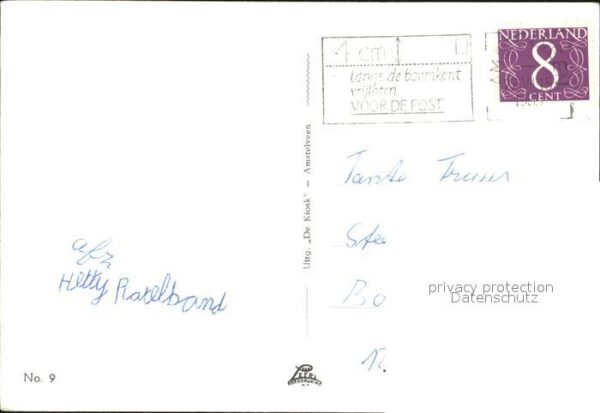 4 cm
langs de bovenkant
vrijlaten
VÓÓR DE POST
NEDERLAND
8
CENT
Uitg. „De Kiosk" – Amstelveen
Tante Truus
afz
Hetty
privacy protection
Datenschutz
No. 9